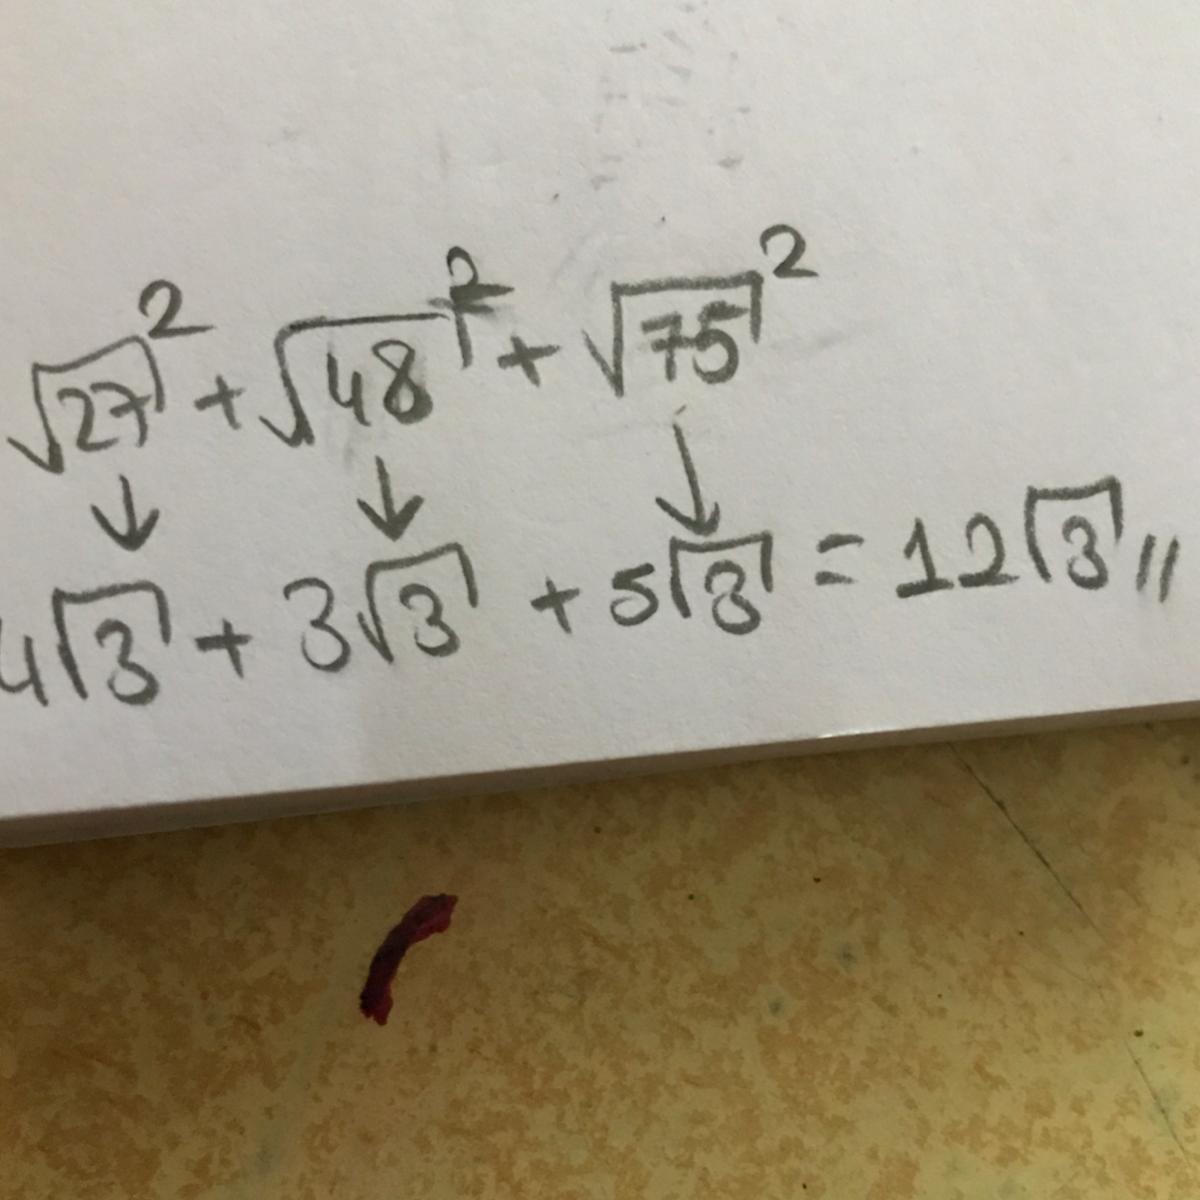 √27² + √48² + √75²
↓ ↓ ↓
4√3 + 3√3 + 5√3 = 12√3 //